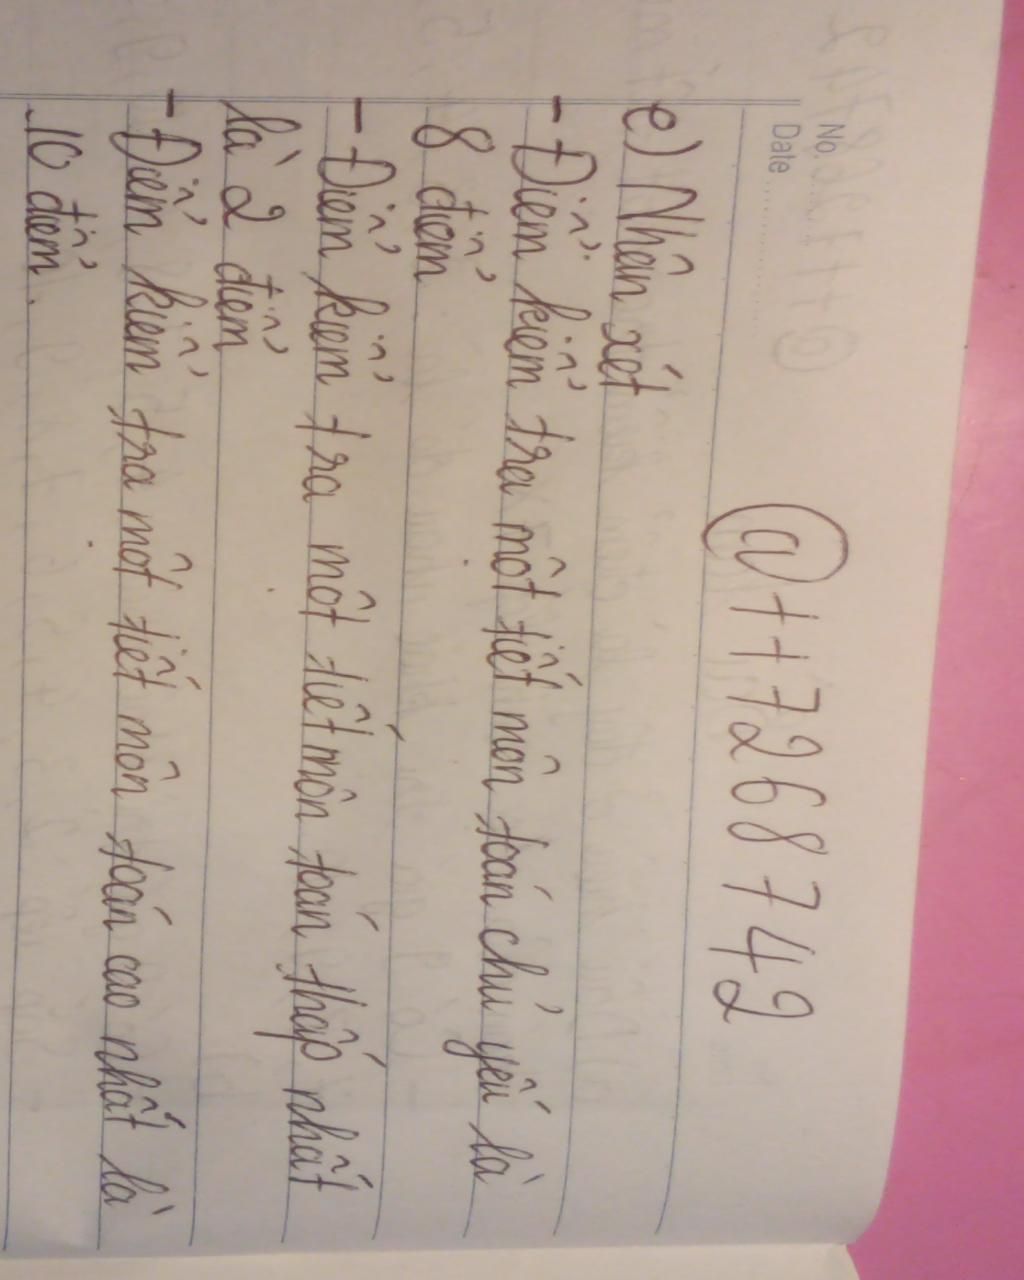 No.
Date
@ttt7268742
e) Nhận xét
- Điểm kiểm tra một tiết môn toán chủ yếu là
8 điểm
- Điểm kiểm tra một tiết môn toán thấp nhất
là 2 điểm
- Điểm kiểm tra một tiết môn toán cao nhất là
10 điểm.